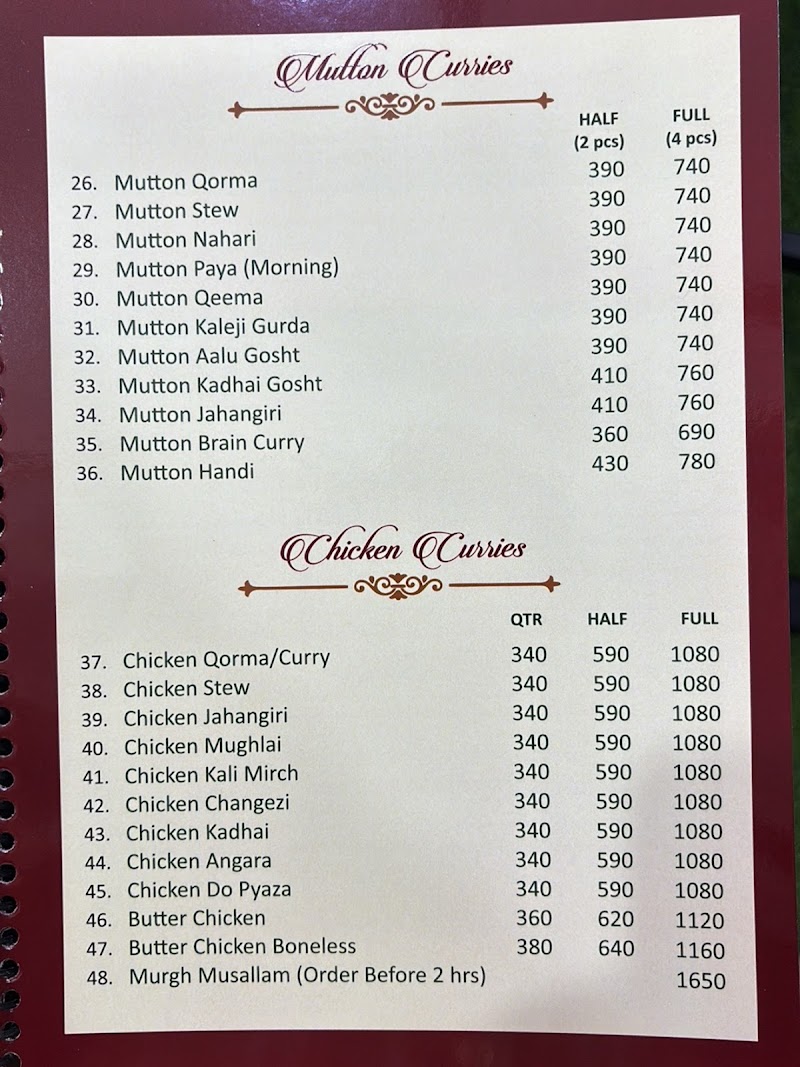 Mutton Curries
HALF FULL
(2 pcs) (4 pcs)
26. Mutton Qorma 390 740
27. Mutton Stew 390 740
28. Mutton Nahari 390 740
29. Mutton Paya (Morning) 390 740
30. Mutton Qeema 390 740
31. Mutton Kaleji Gurda 390 740
32. Mutton Aalu Gosht 390 740
33. Mutton Kadhai Gosht 410 760
34. Mutton Jahangiri 410 760
35. Mutton Brain Curry 360 690
36. Mutton Handi 430 780
Chicken Curries
QTR HALF FULL
37. Chicken Qorma/Curry 340 590 1080
38. Chicken Stew 340 590 1080
39. Chicken Jahangiri 340 590 1080
40. Chicken Mughlai 340 590 1080
41. Chicken Kali Mirch 340 590 1080
42. Chicken Changezi 340 590 1080
43. Chicken Kadhai 340 590 1080
44. Chicken Angara 340 590 1080
45. Chicken Do Pyaza 340 590 1080
46. Butter Chicken 360 620 1120
47. Butter Chicken Boneless 380 640 1160
48. Murgh Musallam (Order Before 2 hrs) 1650